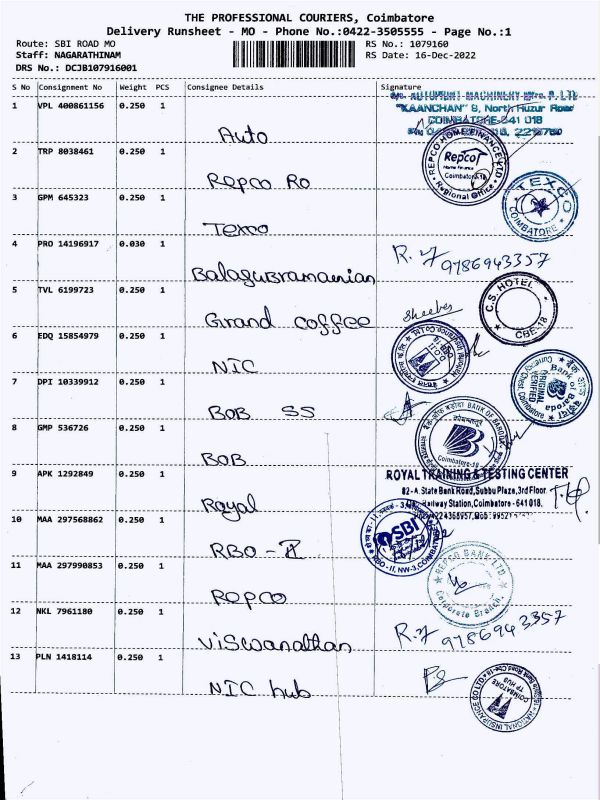 THE PROFESSIONAL COURIERS, Coimbatore
Delivery Runsheet - MO - Phone No.:0422-3505555 - Page No.:1
Route: SBI ROAD MO RS No.: 1079160
Staff: NAGARATHINAM RS Date: 16-Dec-2022
DRS No.: DCJB107916001
S No Consignment No Weight PCS Consignee Details Signature
1 VPL 400861156 0.250 1 Auto
"KAANCHAN" 8, North Huzur Road
COIMBATORE-641 018
2 TRP 8038461 0.250 1 Repco Ro
REPCO HOME FINANCE LTD
Repco
Home Finance
Coimbatore-18
Regional Office
3 GPM 645323 0.250 1 Texco
TEXCO
COIMBATORE
4 PRO 14196917 0.030 1 Balagubramaenian
9786943357
5 TVL 6199723 0.250 1 Grand coffee
C.S. HOTEL
CBE-18
6 EDQ 15854979 0.250 1 NIC
7 DPI 10339912 0.250 1 BOB SS
Bank of Baroda
8 GMP 536726 0.250 1 BOB
BANK OF BARODA
Coimbatore-18
9 APK 1292849 0.250 1 Royal
ROYAL TRAINING & TESTING CENTER
82-A. State Bank Road, Subbu Plaza, 3rd Floor
Railway Station, Coimbatore - 641 018,
10 MAA 297568862 0.250 1 RBO - II
SBI
11 MAA 297990853 0.250 1 Repco
REPCO BANK LTD.
Corporate Branch
12 NKL 7961180 0.250 1 Viswanathan
9786943357
13 PLN 1418114 0.250 1 NIC hub
NATIONAL INSURANCE CO LTD
COIMBATORE
TP HUB